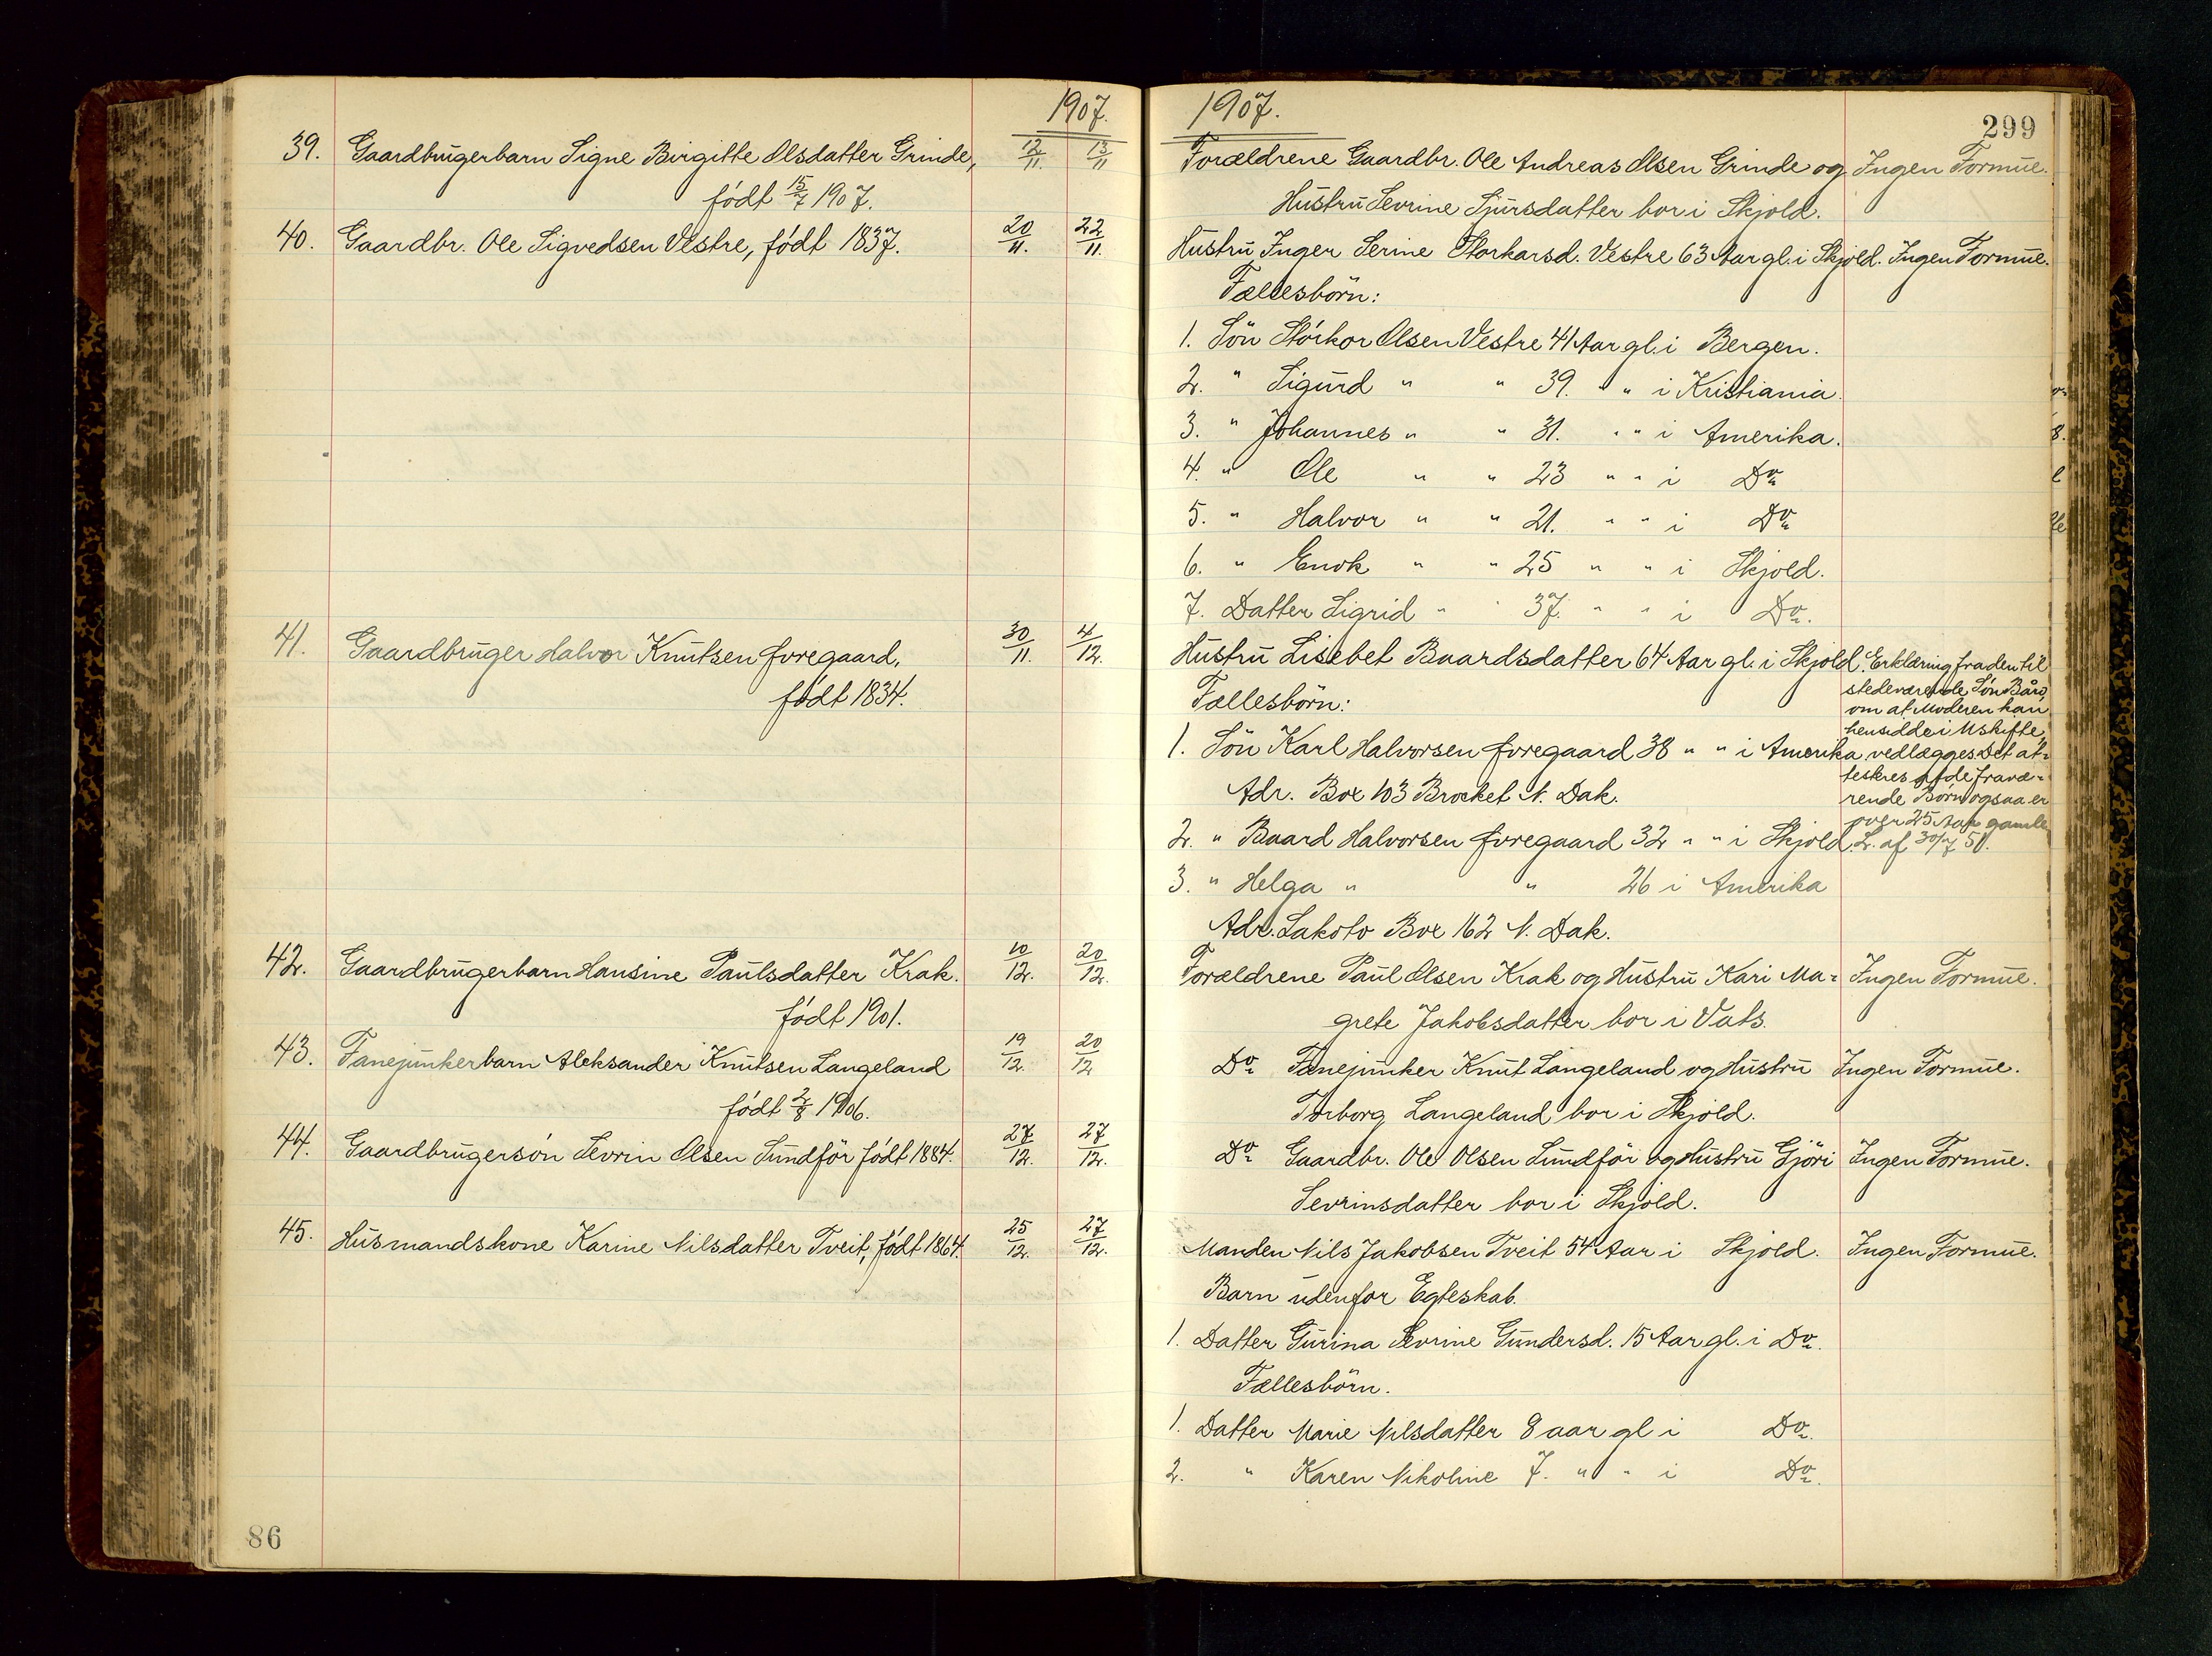 1907.
39. Gaardbrugerbarn Signe Birgitte Olsdatter Grinde, 12/11. 13/11
født 15/7 1907.
40. Gaardbr. Ole Sigvedsen Vestre, født 1837. 20/11. 22/11.
41. Gaardbruger Halvor Knutsen Øvregaard, 30/11. 4/12.
født 1834.
42. Gaardbrugerbarn Hansine Paulsdatter Krak. 10/12. 20/12.
født 1901.
43. Fanejunkerbarn Aleksander Knutsen Langeland 19/12. 20/12
født 2/8 1906.
44. Gaardbrugersön Sevrin Olsen Sundför født 1884. 27/12. 27/12.
45. Husmandskone Karine Nilsdatter Tveit, født 1864. 25/12. 27/12.
86
1907.
299
Forældrene Gaardbr. Ole Andreas Olsen Grinde og Ingen Formue.
Hustru Sevrine Sjursdatter bor i Skjold.
Hustru Inger Serine Storkarsd. Vestre 63 Aar gl. i Skjold. Ingen Formue.
Fællesbörn:
1. Sön Storkor Olsen Vestre 41 Aar gl. i Bergen.
2. " Sigurd " " 39. " " i Kristiania.
3. " Johannes " " 31. " " i Amerika.
4. " Ole " " 23 " " i Do
5. " Halvor " " 21. " " i Do
6. " Enok " " 25 " " i Skjold.
7. Datter Sigrid " " 37. " " i Do.
Hustru Lisebet Baardsdatter 64 Aar gl. i Skjold. Erklæring fra den til
stedeværende Sön Bård
Fællesbörn:
om at Moderen kan
hensidde i Uskifte
1. Sön Karl Halvorsen Øvregaard 38 " " i Amerika vedlægges. Det at-
testeres at de fravæ-
Adr. Box 103 Brocket N. Dak.
rende Börn ogsaa er
over 25 Aar gamle
2. " Baard Halvorsen Øvregaard 32 " " i Skjold. L. af 30/7 51.
3. " Helga " " 26 i Amerika
Adr. Lakoto Box 162 N. Dak.
Forældrene Paul Olsen Krak og Hustru Kari Ma- Ingen Formue.
grete Jakobsdatter bor i Vats.
Do Fanejunker Knut Langeland og Hustru Ingen Formue.
Torborg Langeland bor i Skjold.
Do Gaardbr. Ole Olsen Sundför og Hustru Gjöri Ingen Formue.
Sevrinsdatter bor i Skjold.
Manden Nils Jakobsen Tveit 54 Aar i Skjold. Ingen Formue.
Barn udenfor Egteskab.
1. Datter Gurina Sevrine Gundersd. 15 Aar gl. i Do.
Fællesbörn.
1. Datter Marie Nilsdatter 8 aar gl i Do.
2. " Karen Nikoline 7. " " i Do.